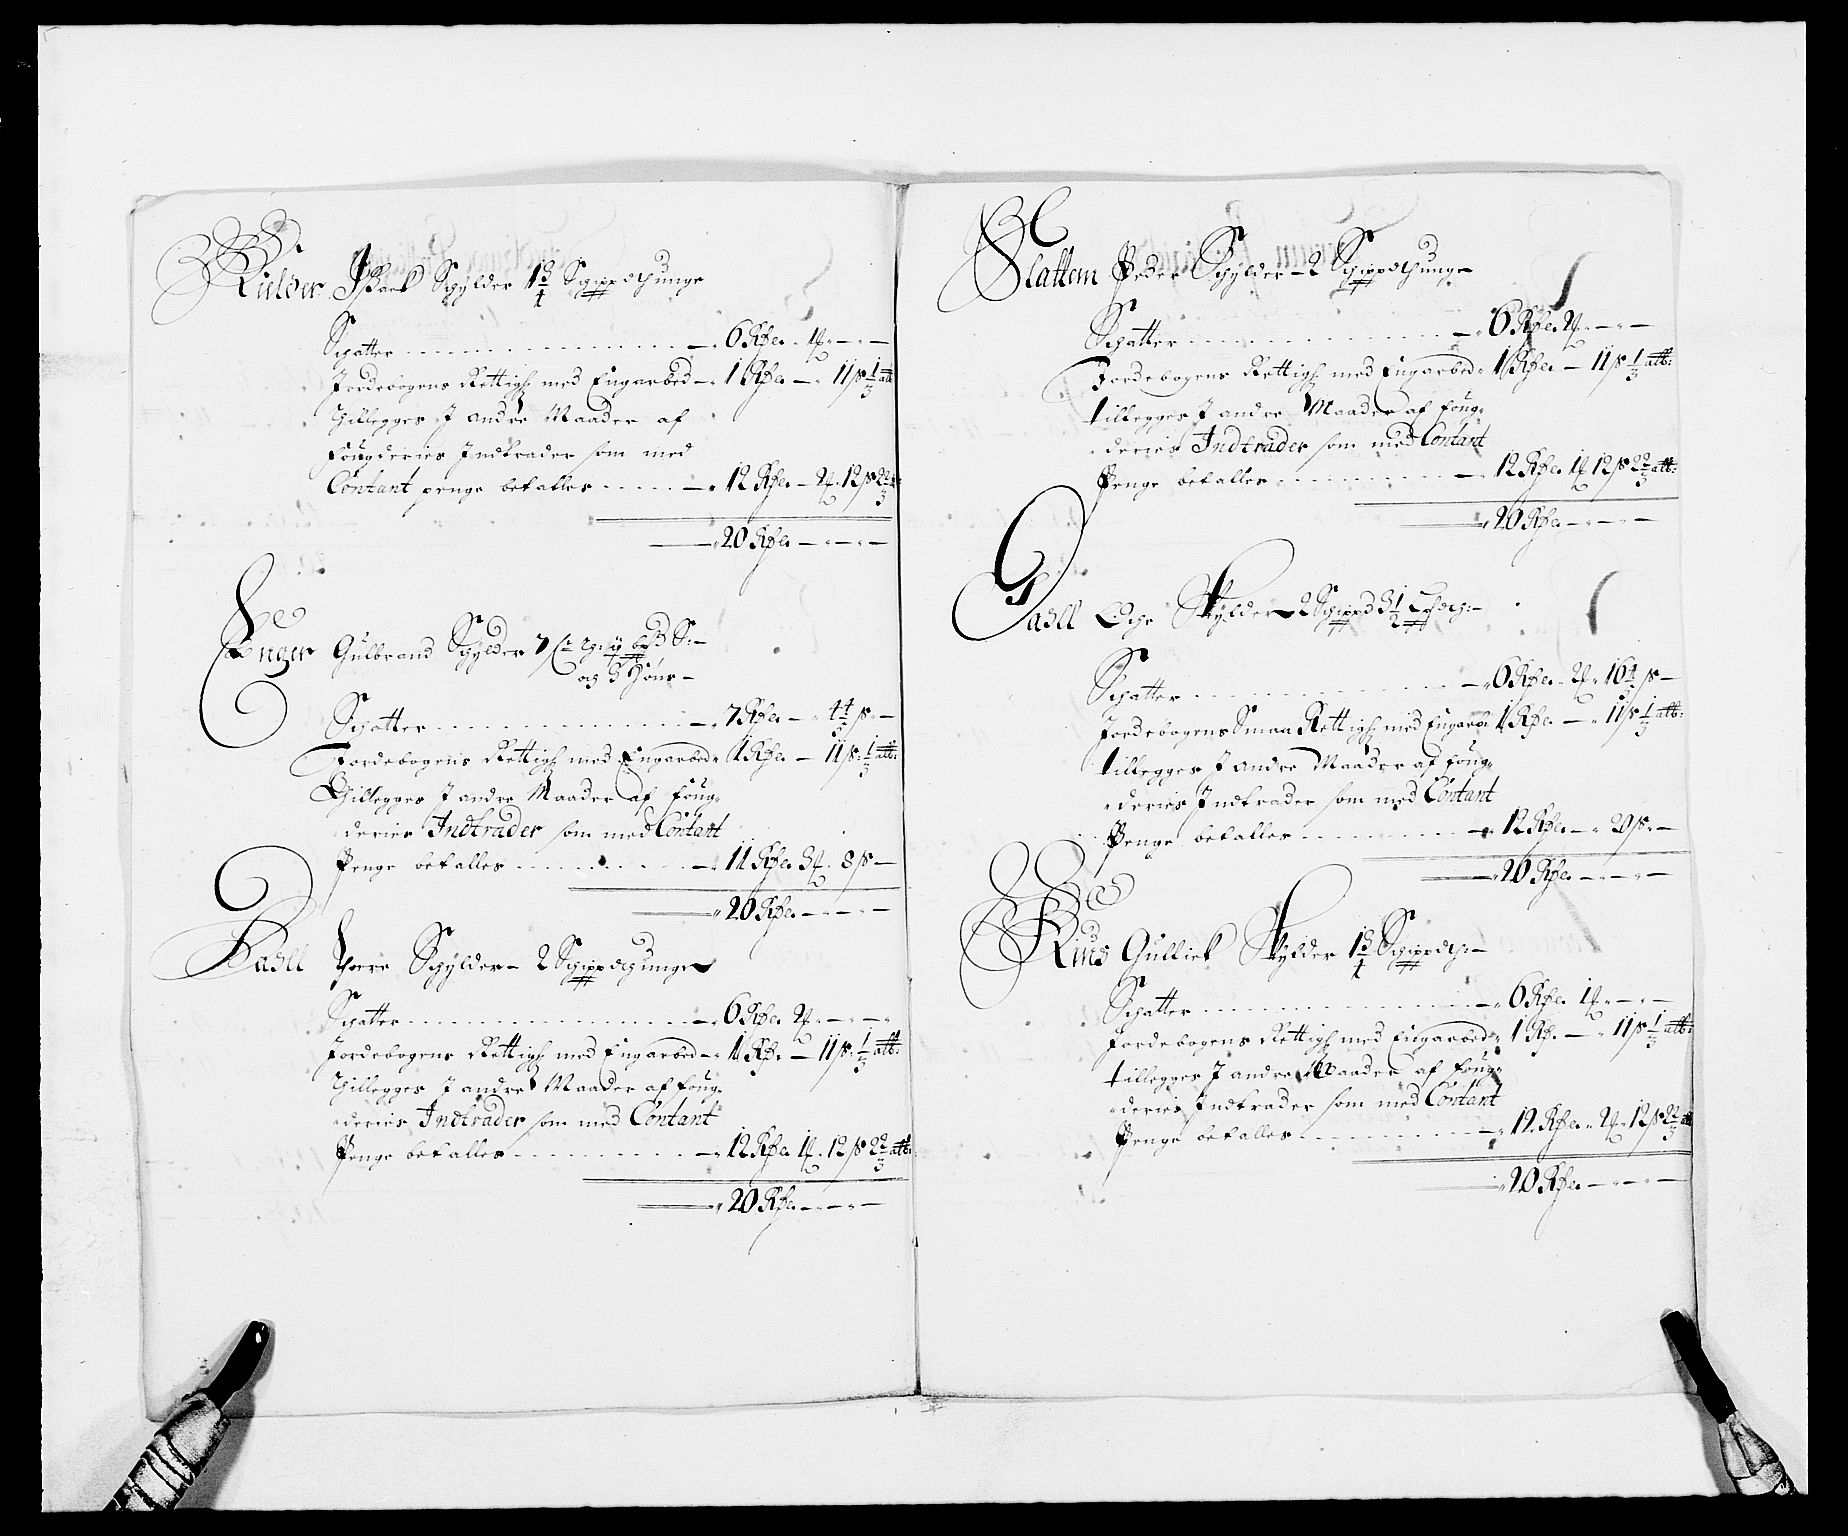 Kielder Isack Schylder 1 3/4 Schippdhunge
Schatter 6 Rde. 1 - -
Jordebogens Rettigh med Engarbed 1 Rde. - 11 ß 1/3 alb
Thillegges J andre Maader af
Fougderies Indtrader som med
Contant penge betalles 12 Rde. 2 12 ß 2 2/3
20 Rde. - - -
Enger Gulbrand Schylder 7
og 3 Höns
Schatter 7 Rde. - 4 4/5 ß -
Jordebogens Rettigh med Engarbed 1 Rde. - 11 ß 1/3 alb:
Thillegges J andre Maader af foug=
=deries Indtrader som med Contant
Penge betalles 11 Rde. 3 8 ß -
20 Rde. - - -
Basll Thore Schylder 2 Schippdhunge
Schatter 6 Rde. 2 - -
Jordebogens Rettigh med Engarbed 1 Rd. - 11 ß 1/3 alb:
Thillegges J andre Maader af foug=
=deries Indtrader som med Contant
Penge betalles 12 Rde. 1 12 ß 2 2/3 alb:
20 Rde. - - -
Slattem Peder Schylder 2 Schippdhunge
Schatter 6 Rde. 2 - -
Jordebogens Rettigh med Engarbed 1 Rde. - 11 ß 1/3 alb:
tillegges J andre Maader af foug=
=deries Indtrader som med Contant
Penge betalles 12 Rde. 1 12 ß 2 2/3 alb:
20 Rde. - - -
Schylder 2 Schippd 3 1/2
Schatter 6 Rde. 2 16 4/5 ß -
Jordebogens Smaa Rettigh med Engarb: 1 Rde. - 11 ß 1/3 alb:
tillegges J andre Maader af foug=
=deries Indtrader som med Contant
Penge betalles 12 Rde. - 20 ß -
20 Rde. - - -
Gulliek Schylder 1 3/4 Schippdh:
Schatter 6 Rde. 1 - -
Jordebogens Rettigh med Engarbed 1 Rd. - 11 ß 1/3 alb:
tillegges J andre Maader af foug=
=deries Indtrader som med Contant
Penge betalles 12 Rde. 2 12 ß 2 2/3 alb
20 Rde. - - -